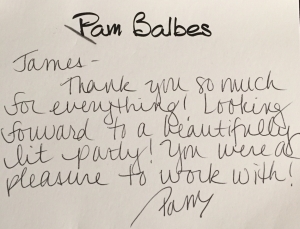 Pam Balbes
James -
Thank you so much
for everything! Looking
forward to a beautifully
lit party! You were a
pleasure to work with!
Pam